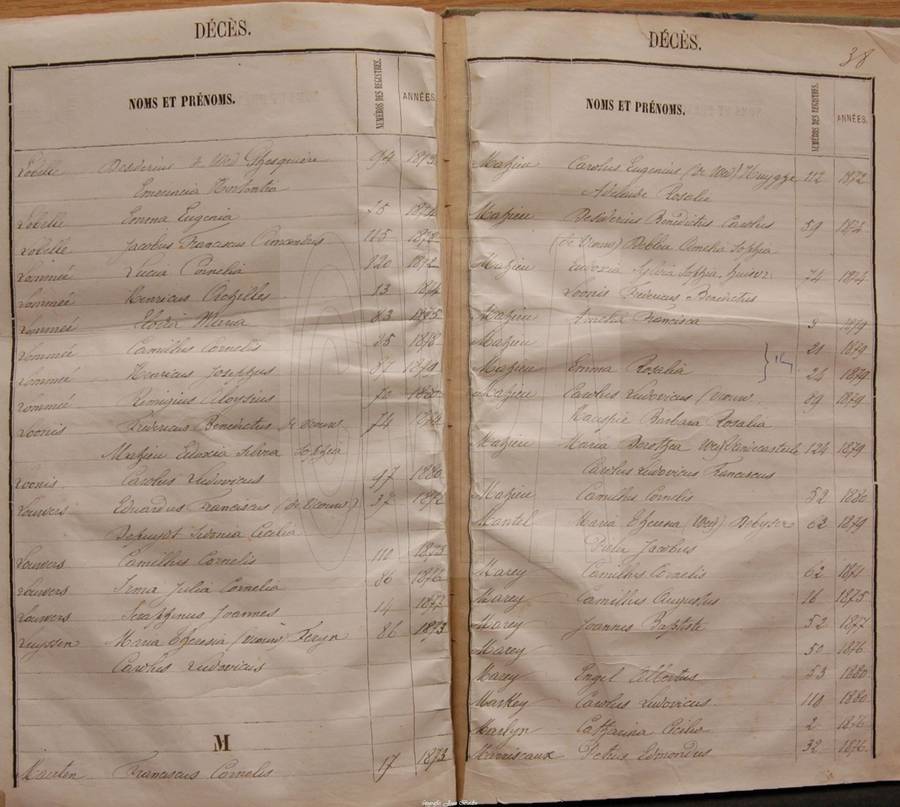 DÉCÈS.
NOMS ET PRÉNOMS. NUMÉROS DES REGISTRES. ANNÉES
Lobelle Desiderius & Wed Ghesquière 94 1873
Emerencia
Lobelle Emma Eugenia 25 1874
Lobelle Jacobus Franciscus 115 1878
Lommée Lucia Cornelia 120 1872
Lommée Henricus Achilles 13 1874
Lommée Elodia Maria 83 1875
Lommée Camillus Cornelis 85 1878
Lommée Henricus Josephus 81 1879
Lommée Remigius Aloysius 70 1880
Loonis Fredericus Benedictus de vrouw 74 1874
Mahieu Eudoxia Silvia Sophia
Loonis Carolus Ludovicus 47 1880
Louvers Eduardus Franciscus (de Vrouw) 37 1872
Sidonia Cecilia
Louvers Camillus Cornelis 110 1873
Louvers Irma Julia Cornelia 86 1876
Louvers Seraphinus Joannes 14 1877
Luyssen Maria Theresia (vrouw) Feryn 86 1873
Carolus Ludovicus
M
Maerten Franciscus Cornelis 17 1873
DÉCÈS.
38
NOMS ET PRÉNOMS. NUMÉROS DES REGISTRES. ANNÉES.
Mahieu Carolus Eugenius (De Wed) Huyghe 112 1872
Adelaide Rosalia
Mahieu Desiderius Benedictus Carolus 59 1874
(de Vrouw) Amelia Sophia
Mahieu Eudoxia Sylvia Sophia 74 1874
Loonis Fredericus Benedictus
Mahieu Amelia Francisca 9 1879
Mahieu 21 1879
Mahieu Emma Rosalia 24 1879
Mahieu Carolus Ludovicus Vrouw 89 1879
Barbara Rosalia
Mahieu Maria Dorothea Wed Vandecasteele 124 1879
Carolus Ludovicus Franciscus
Mahieu Camillus Cornelis 52 1880
Mantel Maria Theresia (Wed) Debyser 62 1879
Pieter Jacobus
Marey Camillus Cornelis 62 1871
Marey Camillus Augustus 16 1875
Marey Joannes Baptiste 52 1877
Marey 50 1876
Marey Engel Albertus 53 1880
Markey Carolus Ludovicus 118 1880
Martyn Catharina Cecilia 2 1876
Marriscaux Petrus Edmondus 32 1876